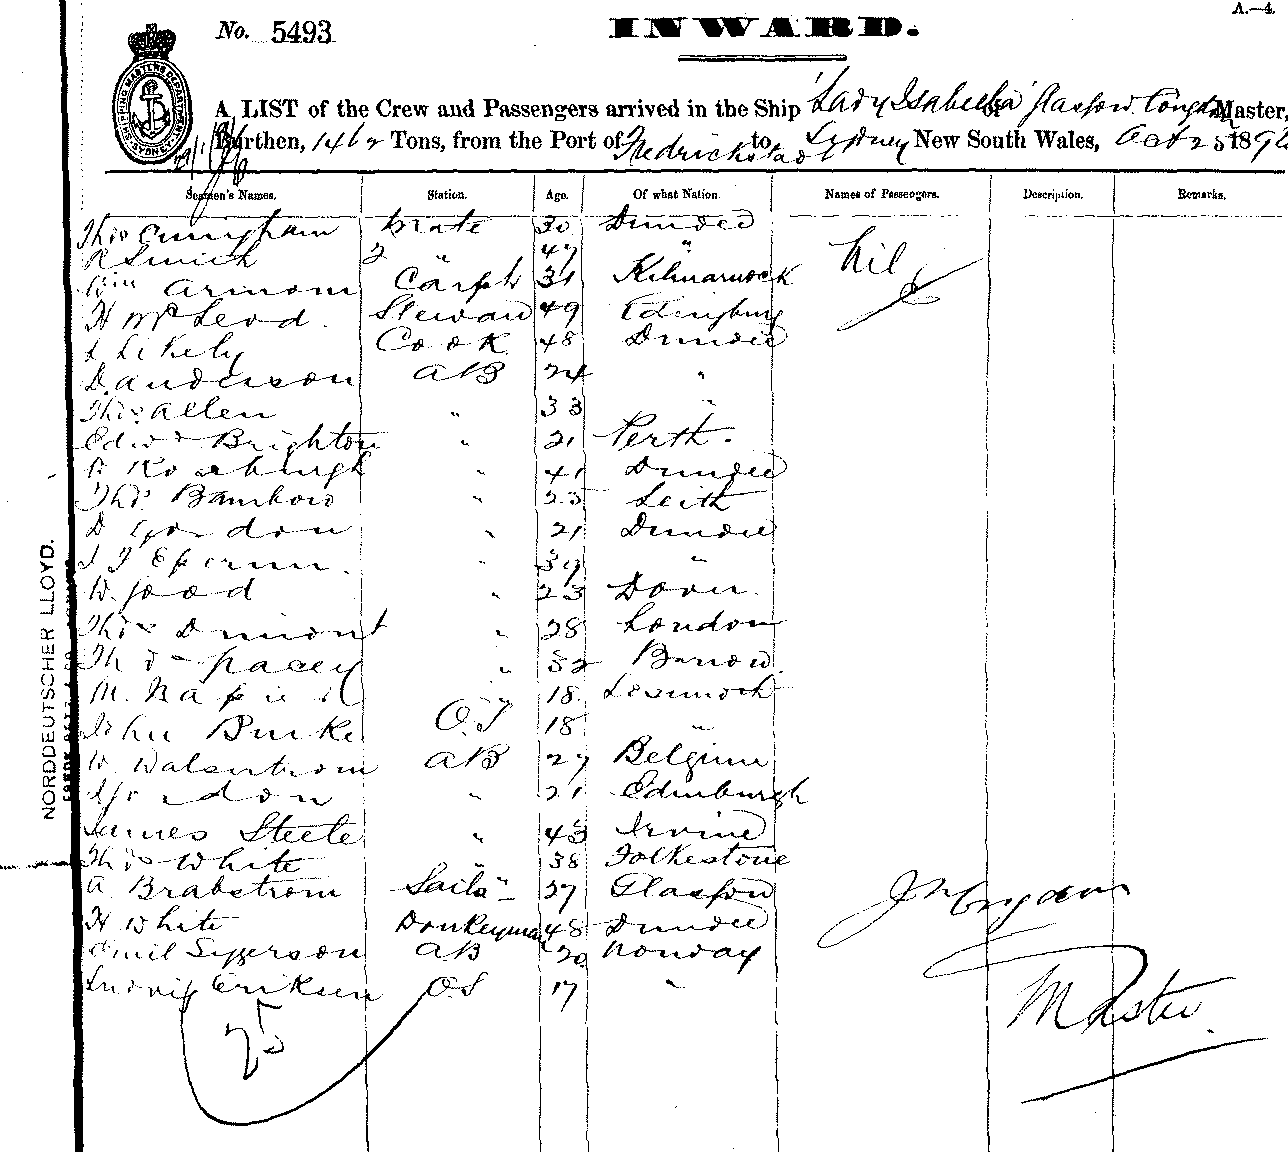 A.—4.
No. 5493
INWARD.
SHIPPING MASTERS DEPARTMENT SYDNEY
A LIST of the Crew and Passengers arrived in the Ship 'Lady Isabella' of Glasgow Master,
Burthen, 1462 Tons, from the Port of Fredrickstad to Sydney New South Wales, Oct 25 189
Seamen's Names. Station. Age. Of what Nation. Names of Passengers. Description. Remarks.
Thos Cunigham Mate 30 Dundee
R Smith 2 " 47 " Nil
Wm Carptr 31 Kilmarnock
H McLeod. Steward 49 Edingburg
Likely Cook 48 Dundee
D. Anderson AB 24 "
Thos Allen " 33 "
Edwd Brighton " 21 Perth.
Roseburgh " 41 Dundee
Thos " 25 Leith
D Gordon " 21 Dundee
" 39 "
W. Good " 23 Dover.
Thos " 28 London
Thos Pacey " 32 Barrow.
M. Napier 18
John Burke O.S 18 "
W. Walsentrom AB 27 Belgium
Gordon " 21 Edinburgh
James Steele " 43 Irvine
Thos White " 38 Folkestone
A Brabstrom 27 Glasgow
H White Donkeyman 48 Dundee
Emil AB 20 Norway
Ludvig Eriksen O.S 17 "
25
Master.
NORDDEUTSCHER LLOYD.